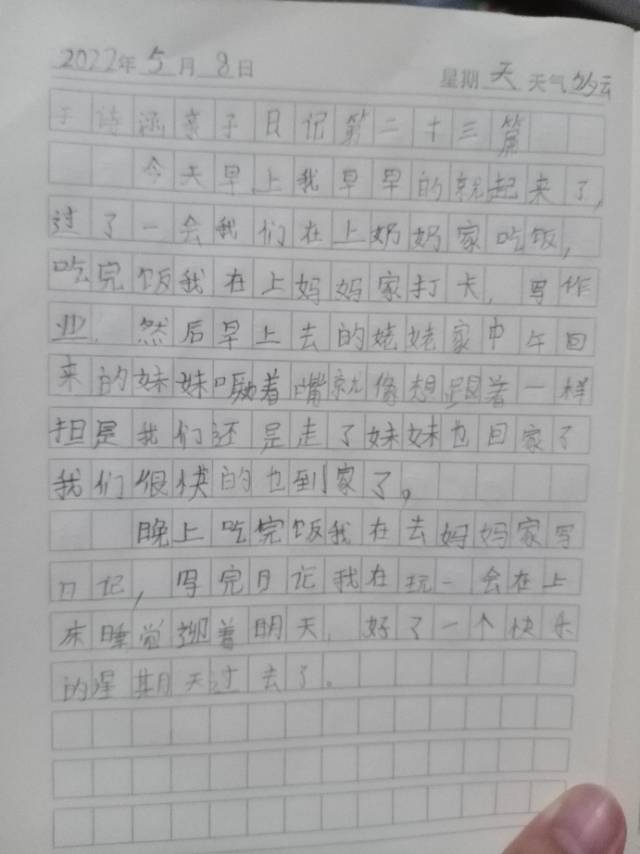 2022年5月8日 星期天 天气多云
于诗涵亲子日记第二十三篇
今天早上我早早的就起来了,
过了一会我们在上奶奶家吃饭,
吃完饭我在上妈妈家打卡,写作
业.然后早上去的姥姥家中午回
来的妹妹嘞着嘴就像想跟着一样
担是我们还是走了妹妹也回家了
我们很快的也到家了。
晚上吃完饭我在去妈妈家写
日记,写完日记我在玩一会在上
床睡觉 着明天.好了一个快乐
的星期天过去了.